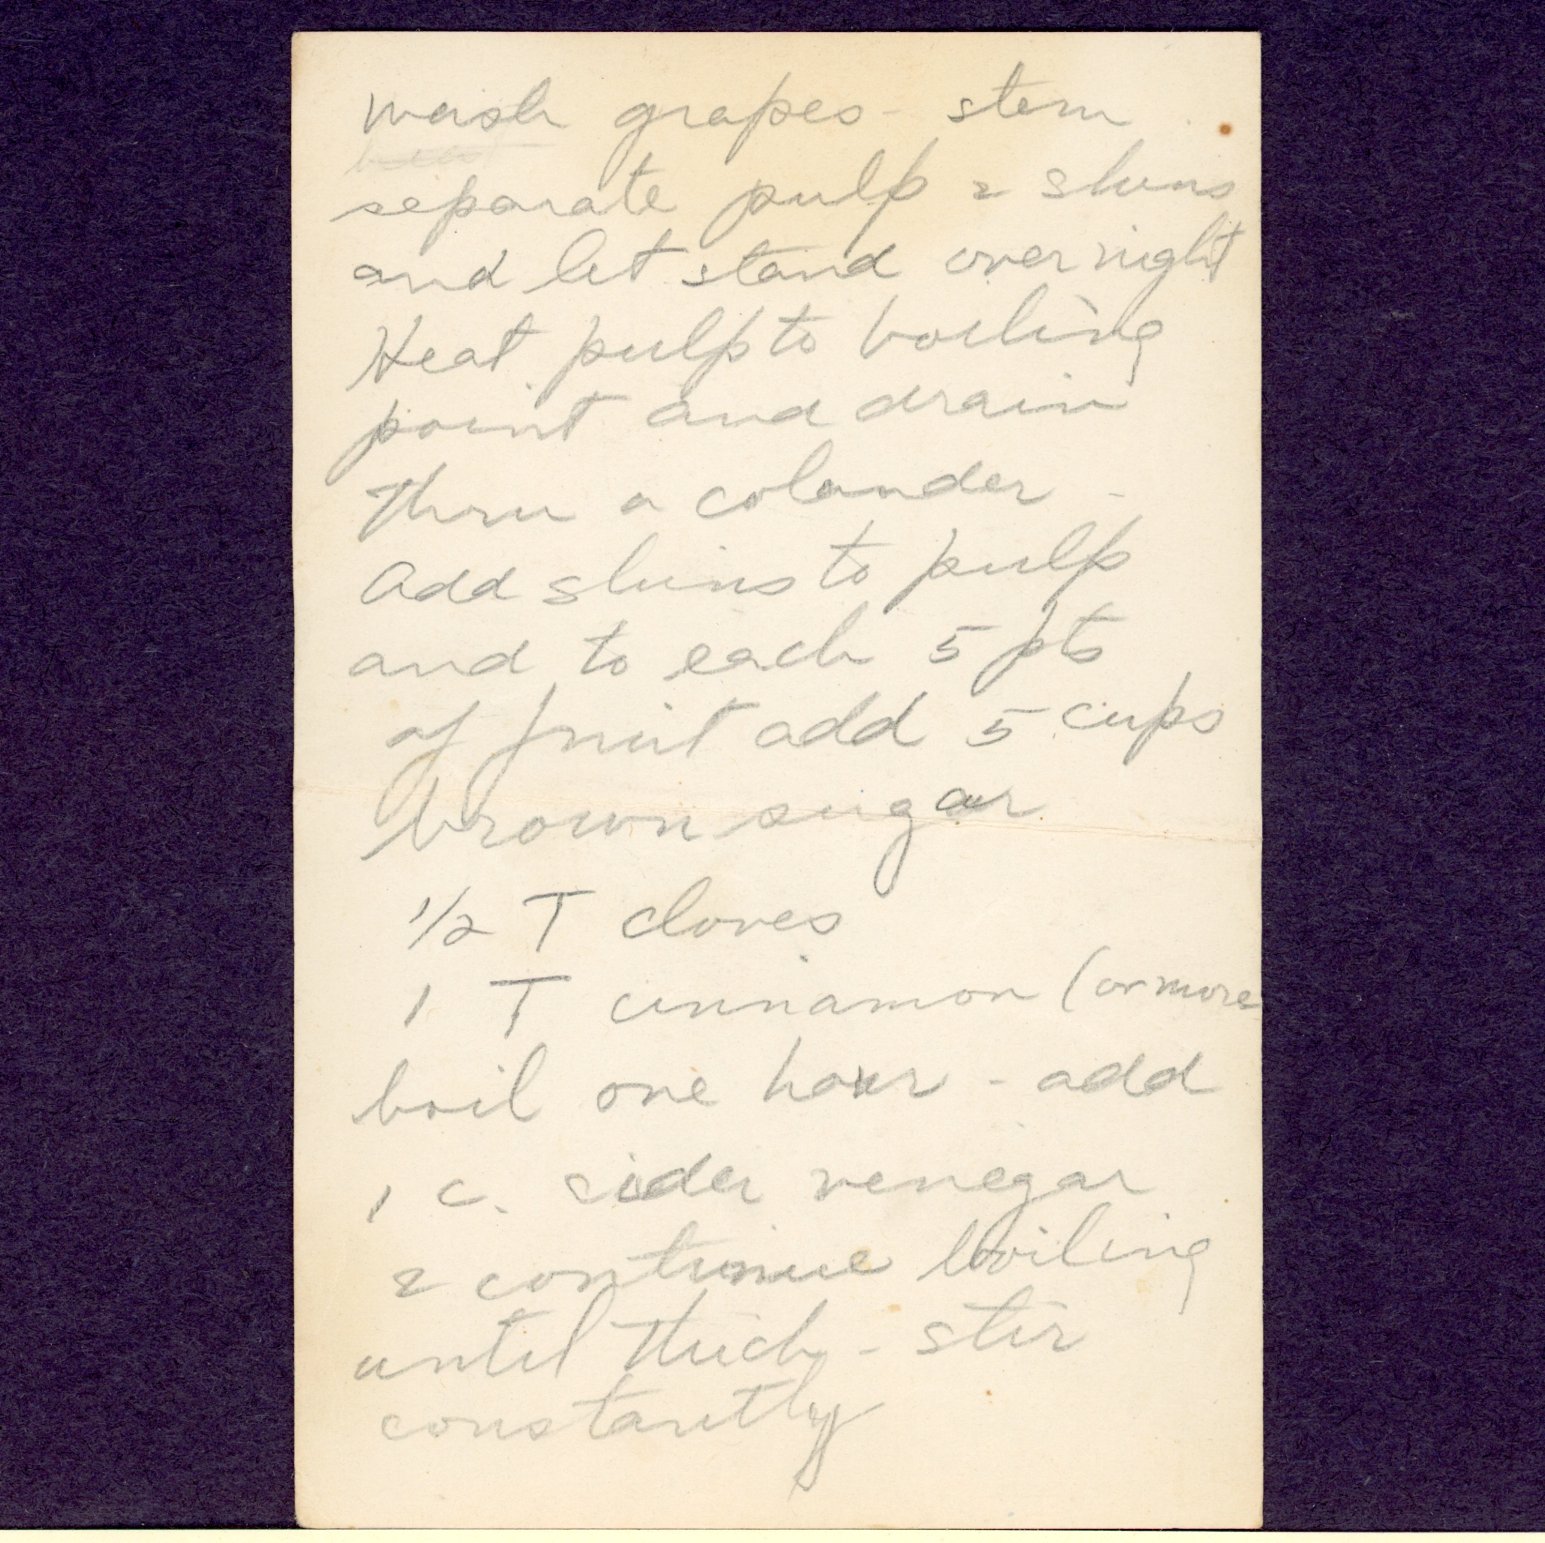 wash grapes - stem
separate pulp & skins
and let stand over night
Heat pulp to boiling
point and drain
thru a colander -
Add skins to pulp
and to each 5 pts
of fruit add 5 cups
brown sugar
1/2 T cloves
1 T cinnamon (or more
boil one hour - add
1 c. sider venegar
& continue boiling
until thick - stir
constantly